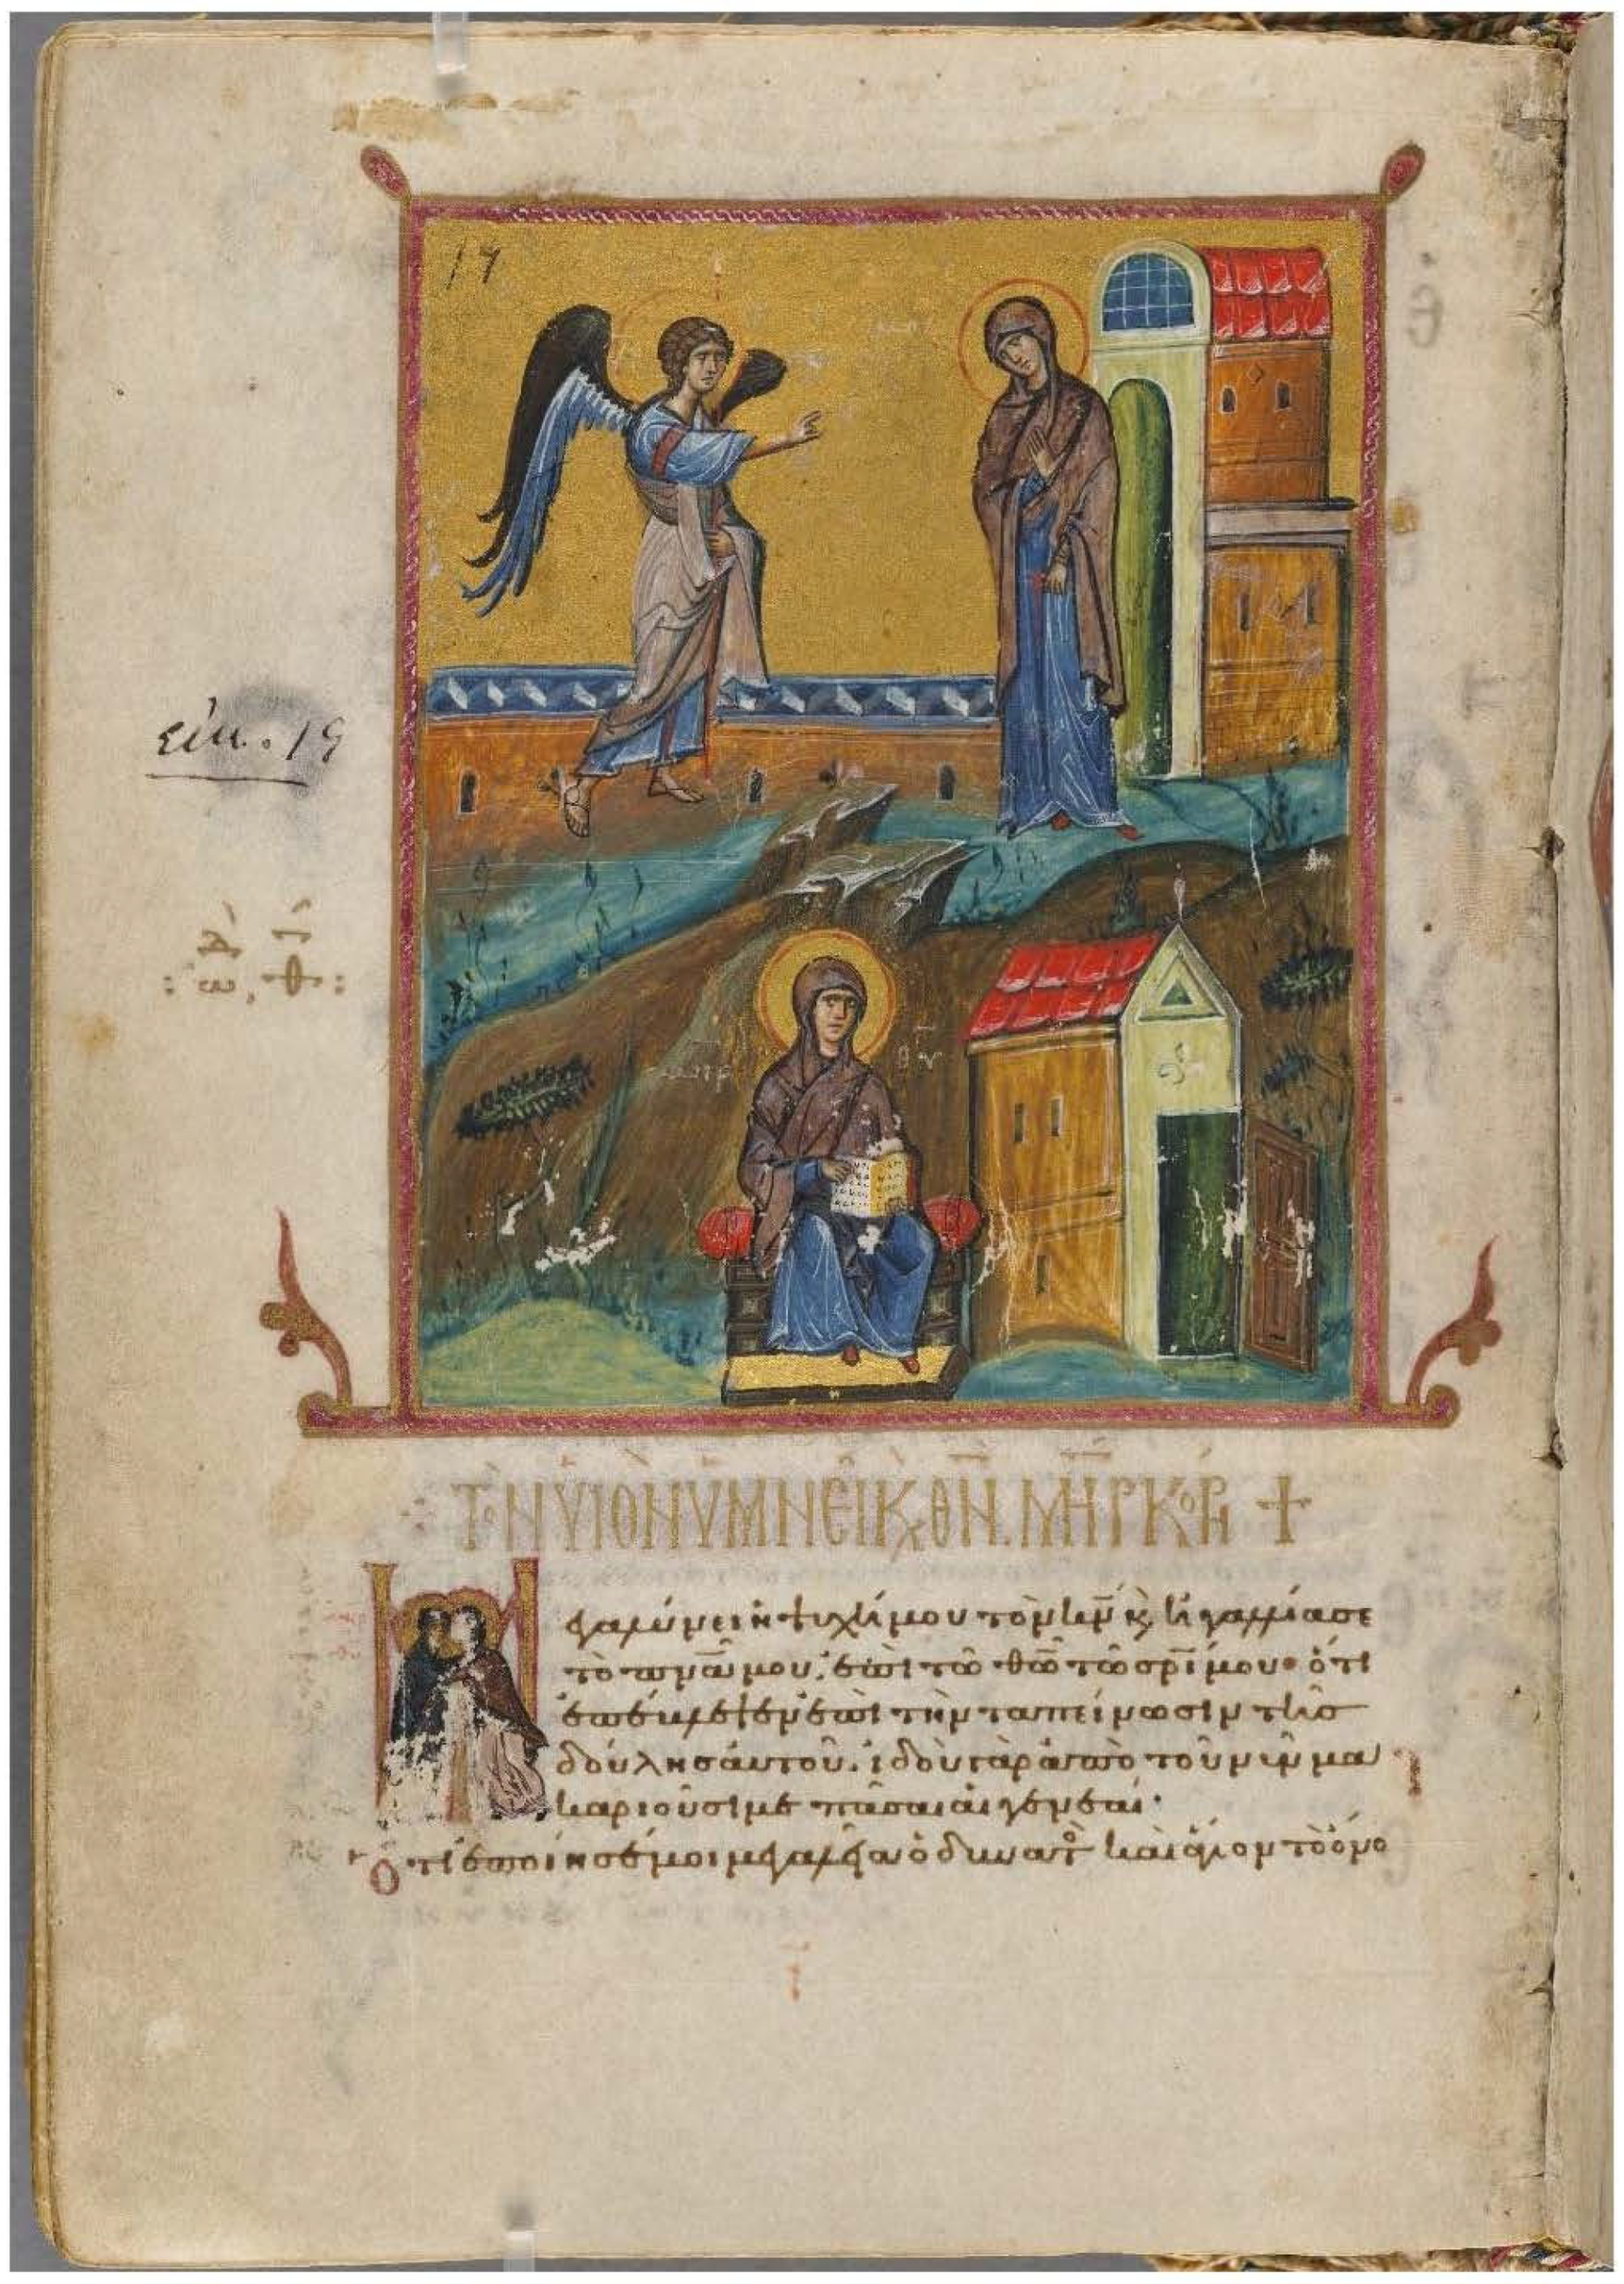 17
εἰκ. 19
ΤῸΝ ΥἹῸΝ ὙΜΝΕΙ͂ Κ, ΘΝ. ΜΗΡ ΚΌΡΗ +
μεγαλύνει ἡ ψυχή μου τὸν κν καὶ ἠγαλλίασε
τὸ πνα μου, ἐπὶ τῶ θω τῶ σρι μου· ὅτι
ἐπέβλεψεν ἐπὶ τὴν ταπείνωσιν τῆς
δούλης αὐτοῦ. ἰδοὺ γὰρ ἀπὸ τοῦ νῦν μα
καριοῦσι με πᾶσαι αἱ γενεαί·
Ὅτι ἐποίησέ μοι μεγαλεῖα ὁ δυνατὸς καὶ ἅγιον τὸ ὄνο